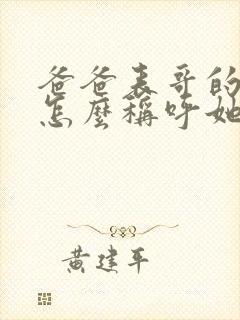 爸爸表哥的
怎麼稱呼她
黃建平